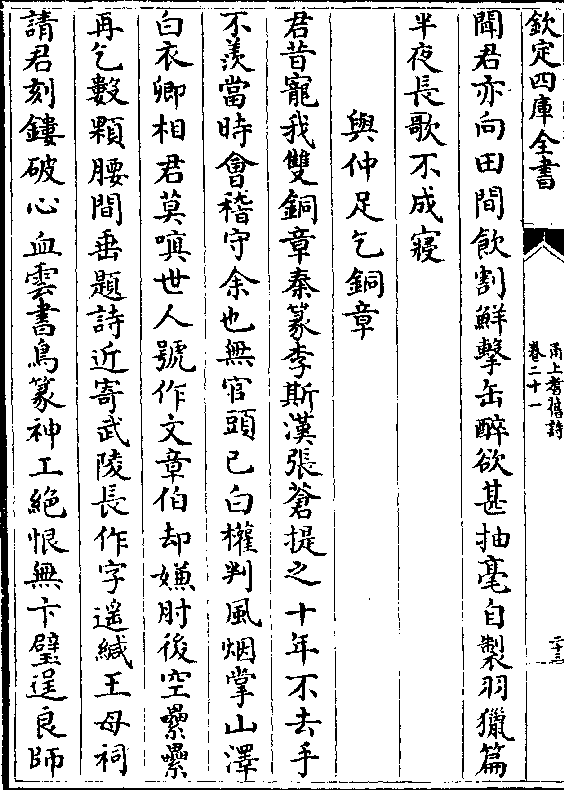 欽定四庫全書
甬上耆舊詩
卷二十一
二十三
聞君亦向田間飲割鮮擊缶醉欲甚抽毫自製羽獵篇
半夜長歌不成寢
與仲足乞銅章
君昔寵我雙銅章秦篆李斯漢張蒼提之十年不去手
不羨當時會稽守余也無官頭已白權判風烟掌山澤
白衣卿相君莫嗔世人號作文章伯却嫌肘後空纍纍
再乞數顆腰間垂題詩近寄武陵長作字遥緘王母祠
請君刻鏤破心血雲書鳥篆神工絶恨無卞璧逞良師